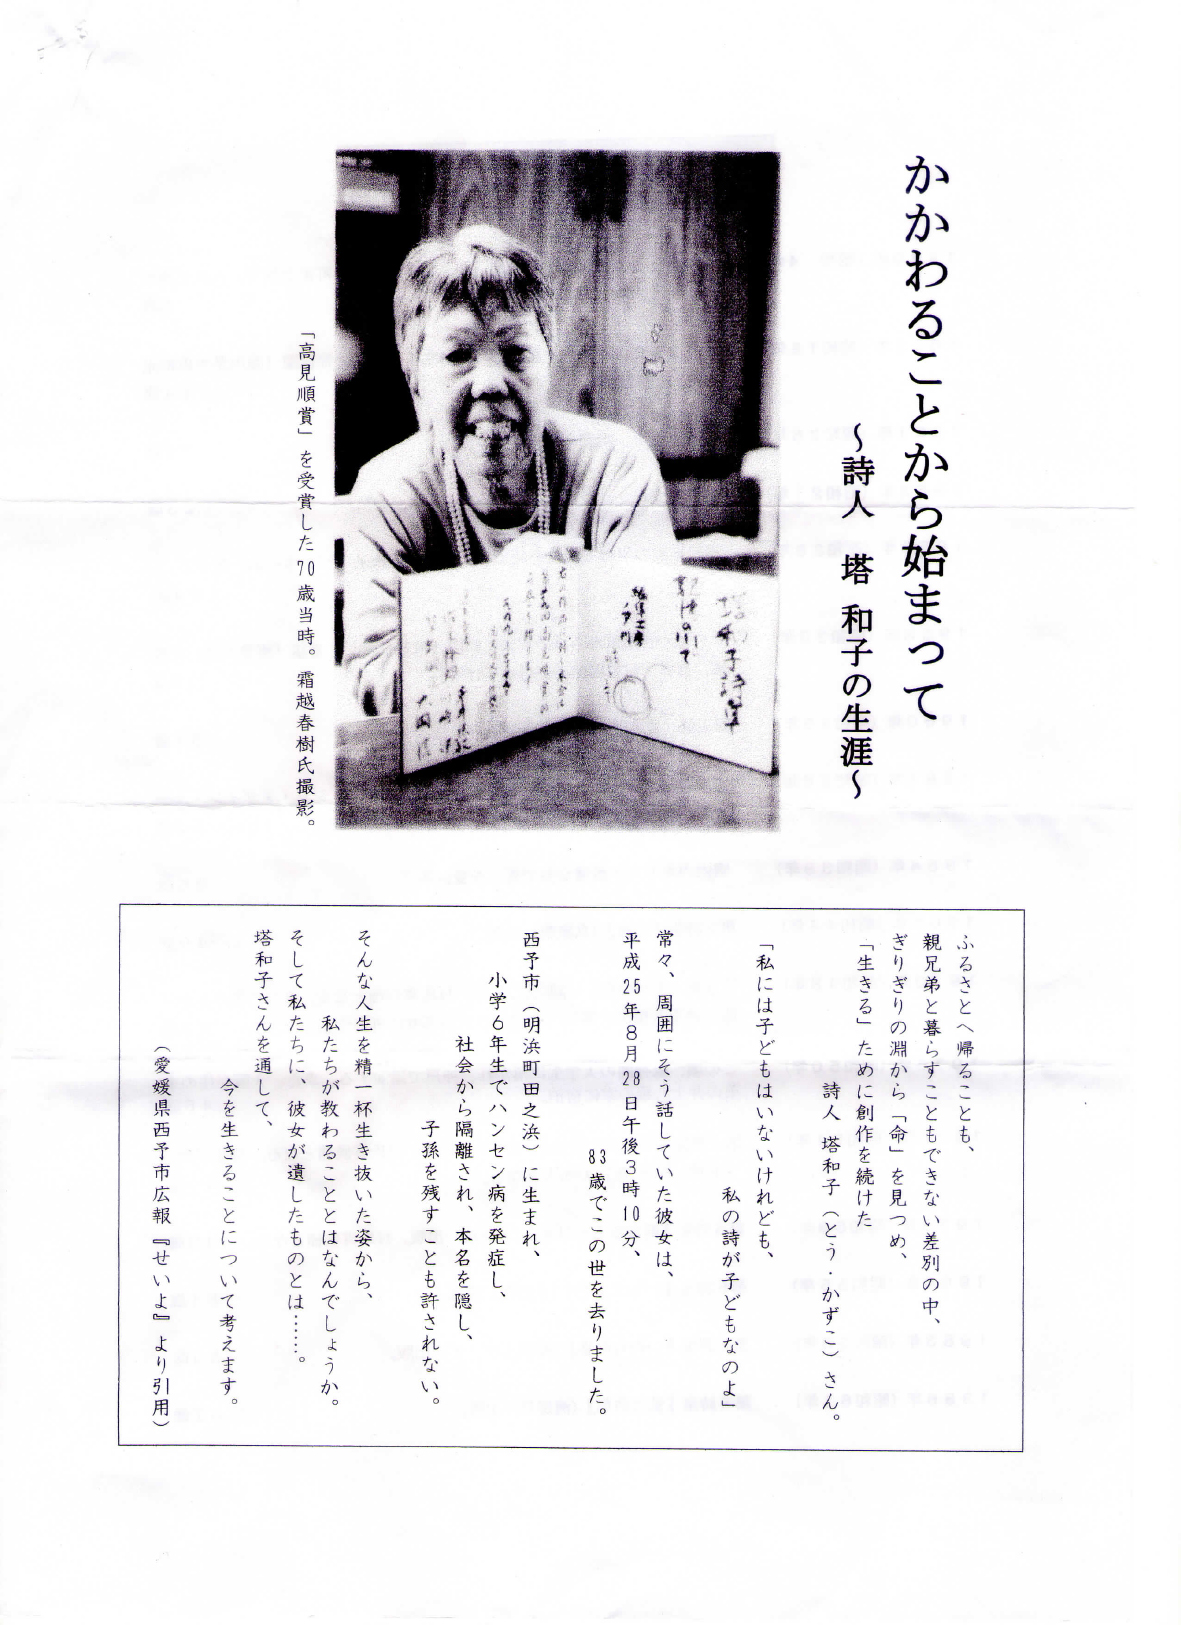 かかわることから始まって
～詩人　塔 和子の生涯～
塔和子詩集
記憶の川で
「高見順賞」を受賞した70歳当時。霜越春樹氏撮影。
ふるさとへ帰ることも、
親兄弟と暮らすこともできない差別の中、
ぎりぎりの淵から「命」を見つめ、
「生きる」ために創作を続けた
詩人 塔和子（とう・かずこ）さん。
「私には子どもはいないけれども、
私の詩が子どもなのよ」
常々、周囲にそう話していた彼女は、
平成25年8月28日午後3時10分、
83歳でこの世を去りました。
西予市（明浜町田之浜）に生まれ、
小学6年生でハンセン病を発症し、
社会から隔離され、本名を隠し、
子孫を残すことも許されない。
そんな人生を精一杯生き抜いた姿から、
私たちが教わることとはなんでしょうか。
そして私たちに、彼女が遺したものとは……。
塔和子さんを通して、
今を生きることについて考えます。
（愛媛県西予市広報『せいよ』より引用）